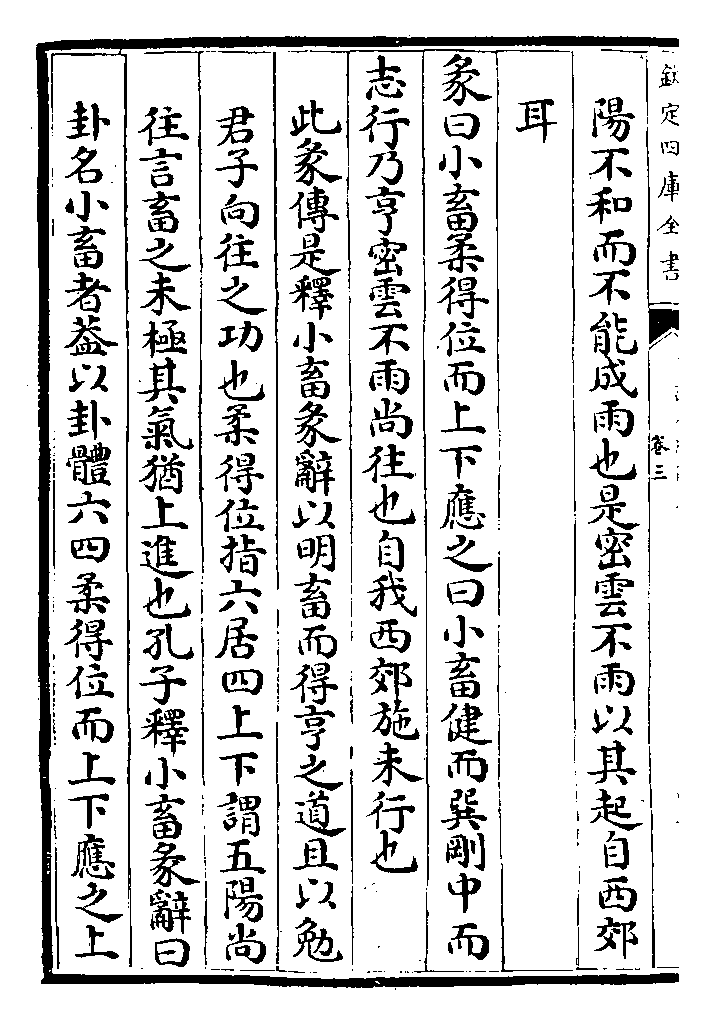 欽定四庫全書
卷三
陽不和而不能成雨也是密雲不雨以其起自西郊
耳
彖曰小畜柔得位而上下應之曰小畜健而巽剛中而
志行乃亨密雲不雨尚往也自我西郊施未行也
此彖傳是釋小畜彖辭以明畜而得亨之道且以勉
君子向往之功也柔得位指六居四上下謂五陽尚
往言畜之未極其氣猶上進也孔子釋小畜彖辭曰
卦名小畜者葢以卦體六四柔得位而上下應之上